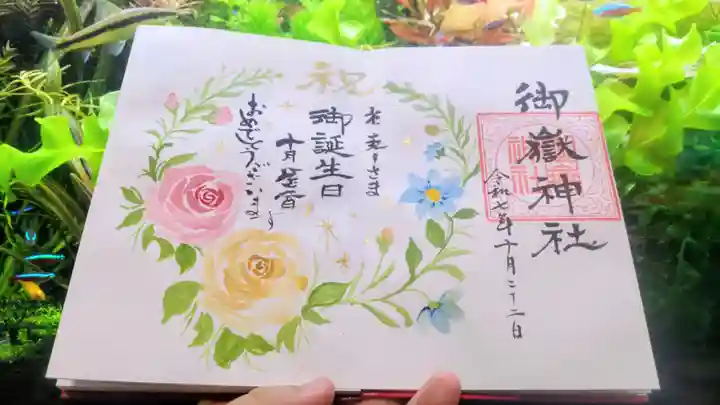 御嶽神社
令和七年十月二十二日
祝
さま
御誕生日
十月
おめでとうございます